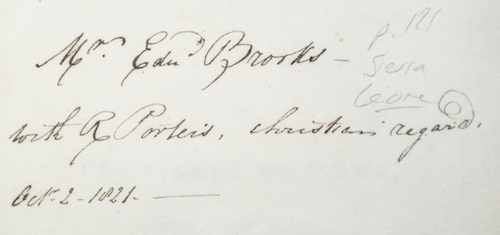 Mr. Edwd. Brooks -
with R Porters, christian regard,
Octr. 2 - 1821. —
p. 121
Sierra
Leone